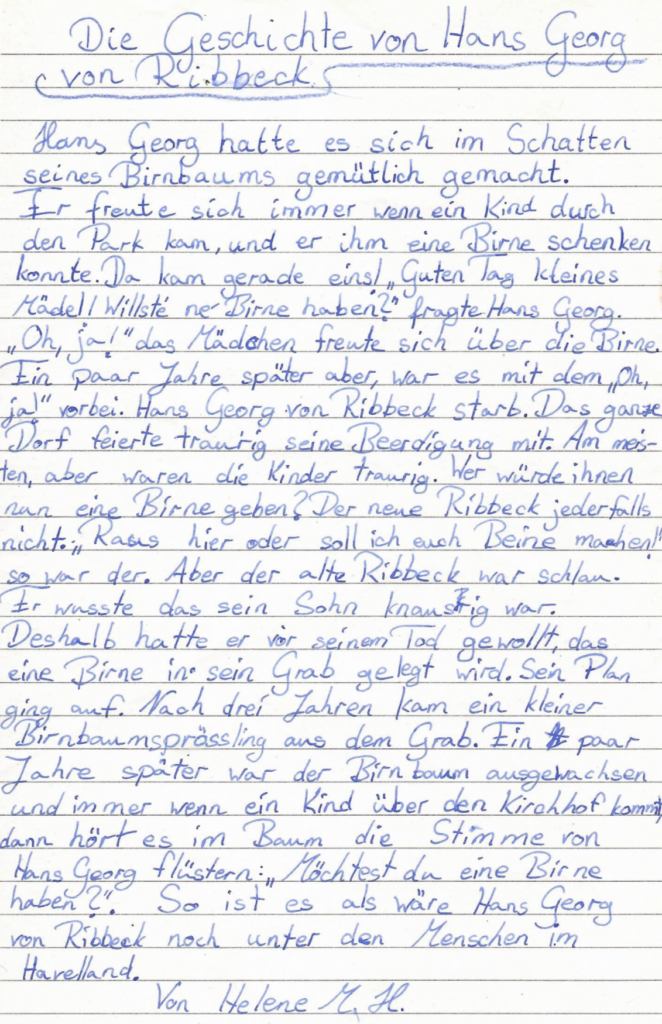 Die Geschichte von Hans Georg
von Ribbeck.
Hans Georg hatte es sich im Schatten
seines Birnbaums gemütlich gemacht.
Er freute sich immer wenn ein Kind durch
den Park kam, und er ihm eine Birne schenken
konnte. Da kam gerade eins! „Guten Tag kleines
Mädel! Willste ne Birne haben?" fragte Hans Georg.
„Oh, ja!" das Mädchen freute sich über die Birne.
Ein paar Jahre später aber, war es mit dem „Oh,
ja!" vorbei. Hans Georg von Ribbeck starb. Das ganze
Dorf feierte traurig seine Beerdigung mit. Am meis-
ten, aber waren die Kinder traurig. Wer würde ihnen
nun eine Birne geben? Der neue Ribbeck jederfalls
nicht: „Raus hier oder soll ich euch Beine machen!"
so war der. Aber der alte Ribbeck war schlau.
Er wusste das sein Sohn knaustrig war.
Deshalb hatte er vor seinem Tod gewollt, das
eine Birne in sein Grab gelegt wird. Sein Plan
ging auf. Nach drei Jahren kam ein kleiner
Birnbaumsprössling aus dem Grab. Ein paar
Jahre später war der Birnbaum ausgewachsen
und immer wenn ein Kind über den Kirchhof kommt,
dann hört es im Baum die Stimme von
Hans Georg flüstern: „Möchtest du eine Birne
haben?". So ist es als wäre Hans Georg
von Ribbeck noch unter den Menschen im
Havelland.
Von Helene M. H.